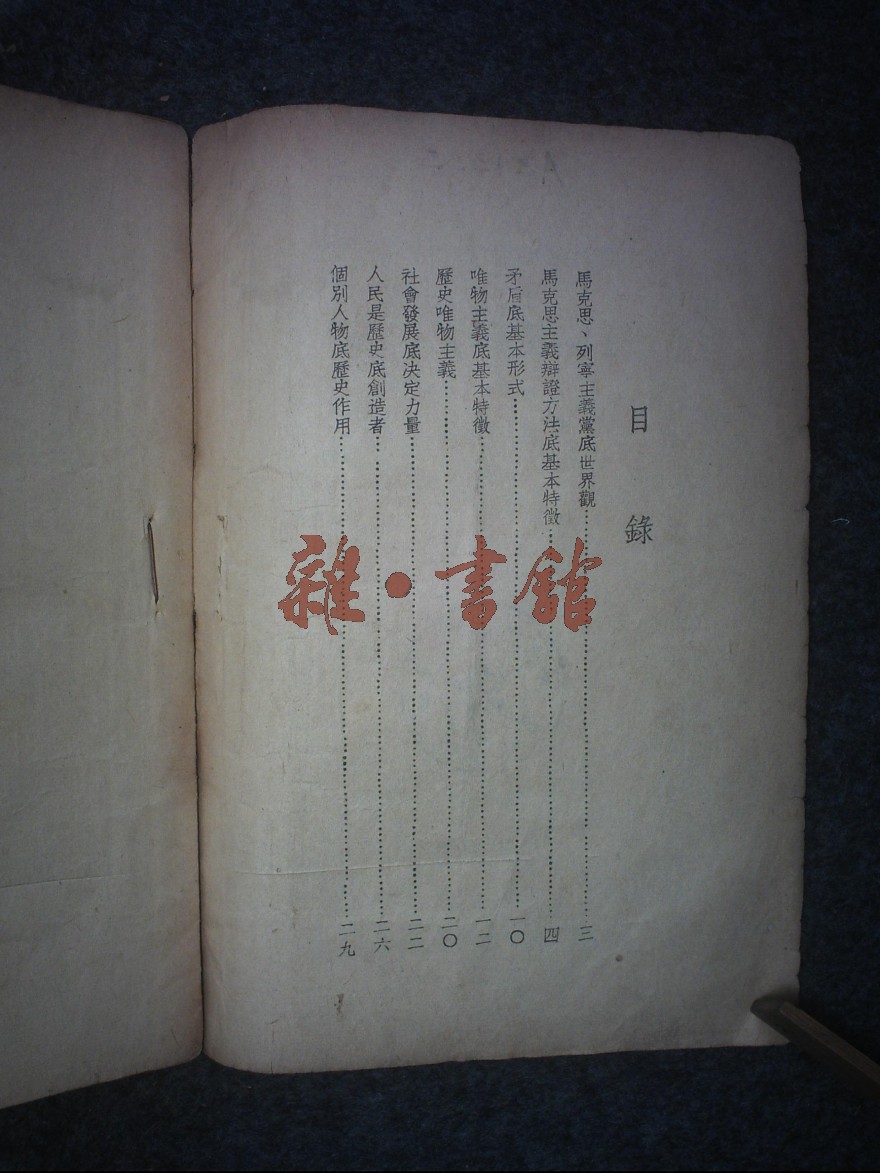 目錄
馬克思、列寧主義黨底世界觀……三
馬克思主義辯證方法底基本特徵……四
矛盾底基本形式……一〇
唯物主義底基本特徵……一二
歷史唯物主義……二〇
社會發展底決定力量……二二
人民是歷史底創造者……二六
個別人物底歷史作用……二九
雜·書館